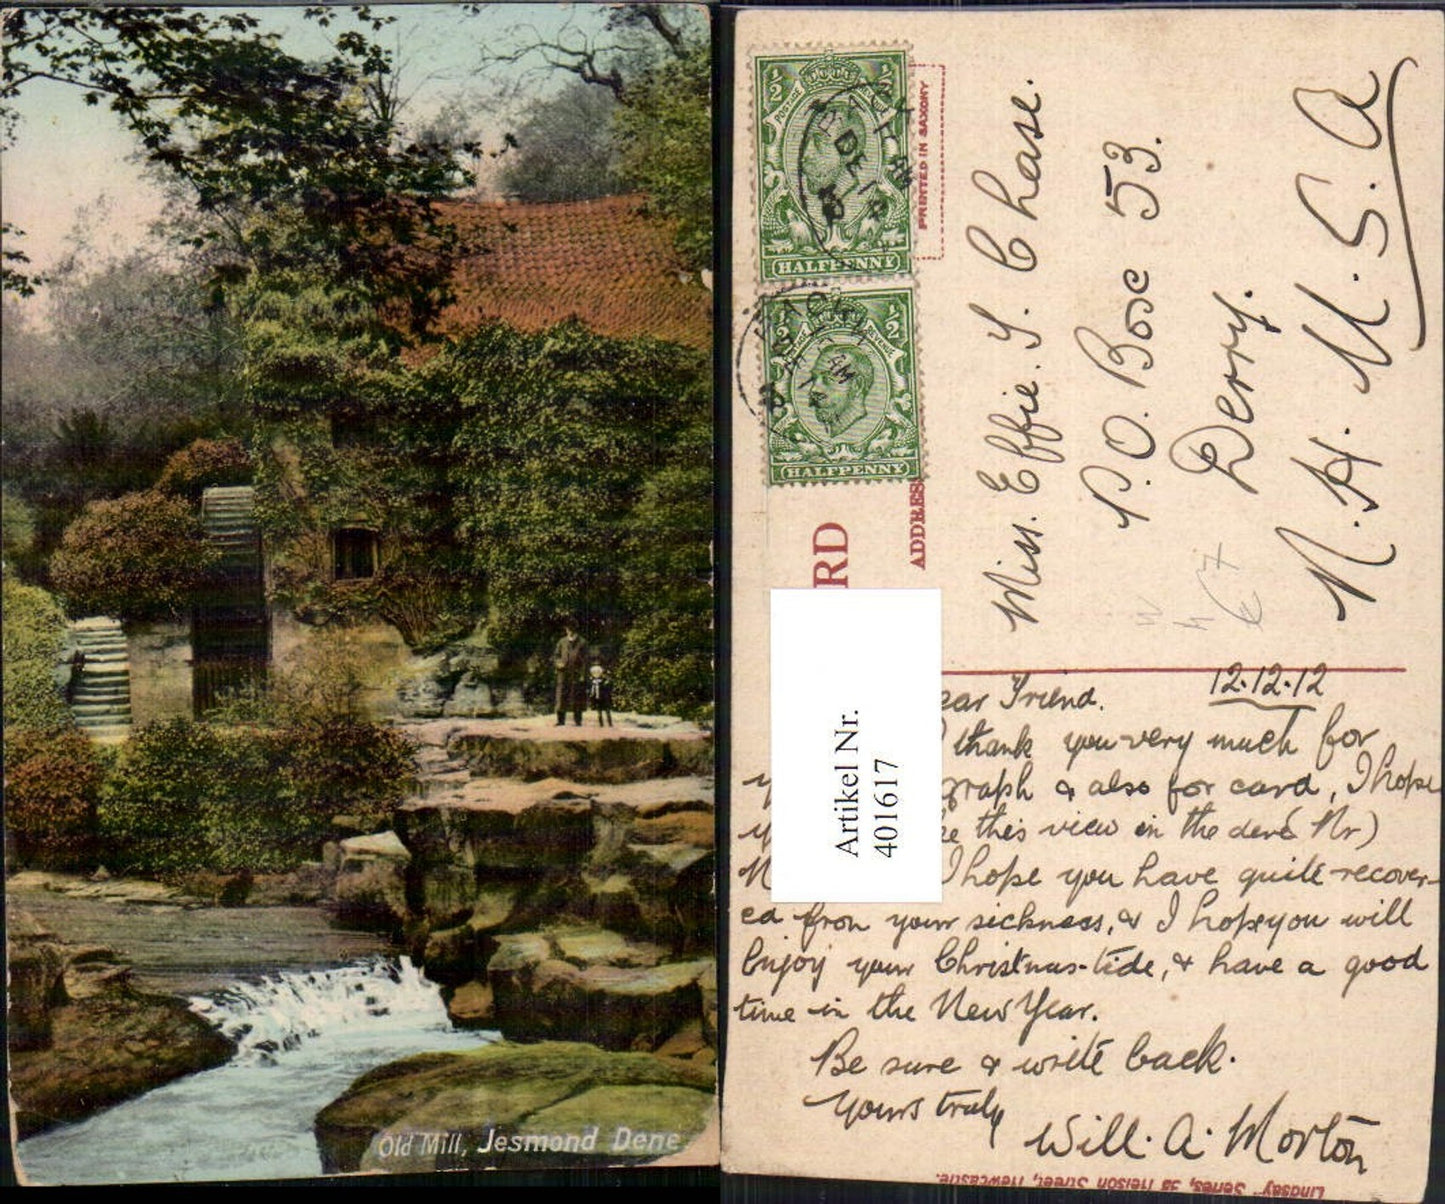 Old Mill, Jesmond Dene
½ ½
POSTAGE REVENUE
HALFPENNY
½ ½
REVENUE
HALFPENNY
PRINTED IN SAXONY
RD
ADDRES
Miss. Effie. S. Chase.
P.O. Box 53.
Derry.
N. H. U. S. A
Artikel Nr.
401617
12.12.12
ear Friend.
I thank you very much for
graph & also for card, I hope
this view in the dene Nr)
I hope you have quite recover-
ed from your sickness, & I hope you will
Enjoy your Christmas-tide, & have a good
time in the New Year.
Be sure & write back.
Yours truly
Will. A. Morton
Lindsay" Series, 3a Nelson Street, Newcastle.